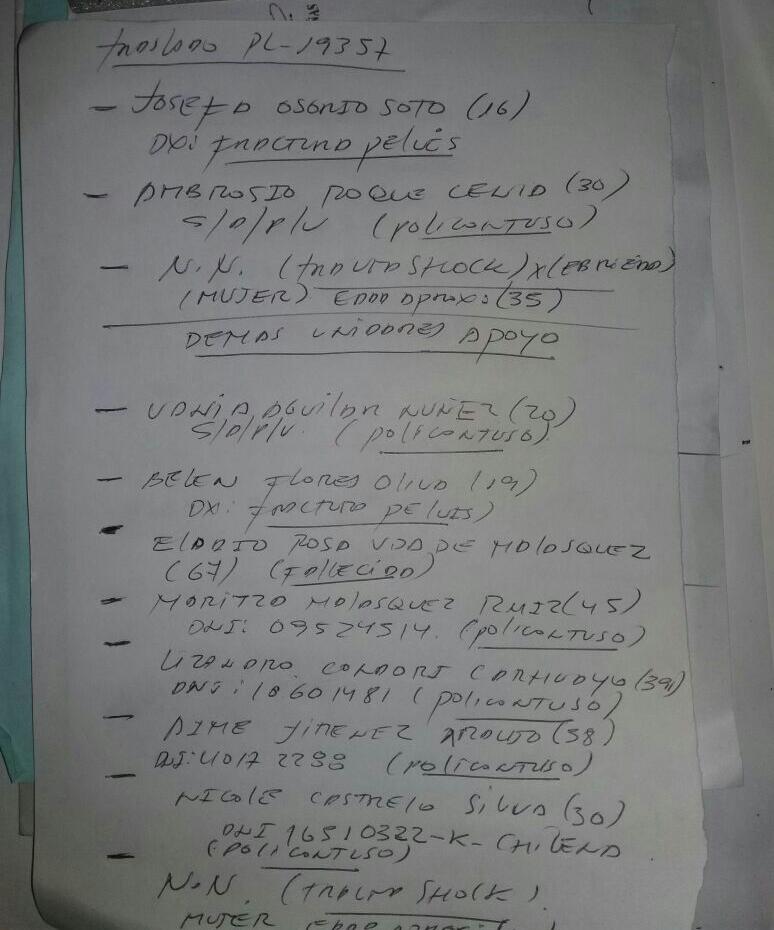 TRASLADO PL-19357
- JOSEFA OSORIO SOTO (16)
DX: FRACTURA PELVIS
- AMBROSIO ROQUE (30)
S/D/P/V (POLICONTUSO)
- N.N. (TRAUMA SHOCK) X (EBRIEDAD)
(MUJER) EDAD APROX: (35)
DEMAS UNIDADES APOYO
- VANIA AGUILAR NUÑEZ (20)
S/D/P/V. (POLICONTUSO)
- BELEN FLORES OLIVA (19)
DX: FRACTURA PELVIS)
- ROSA VDA DE MOLASQUEZ
(67) (FALLECIDO)
- MARITZA MOLASQUEZ RUIZ (45)
DNI: 09524514. (POLICONTUSO)
- LIZANDRO CONDORI (39)
DNI: 18601481 (POLICONTUSO)
- AIME JIMENEZ (58)
(POLICONTUSO)
- NICOLE SILVA (30)
DNI 16510322-K- CHILENA
(POLICONTUSO)
- N.N. (TRAUMA SHOCK).
MUJER EDAD